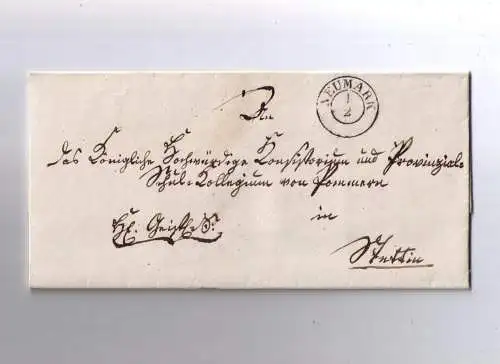 NEUMARK
1/2
An
das Königliche Hochwürdige Konsistorium und Provinzial-
Schul-Kollegium von Pommern
in
Stettin